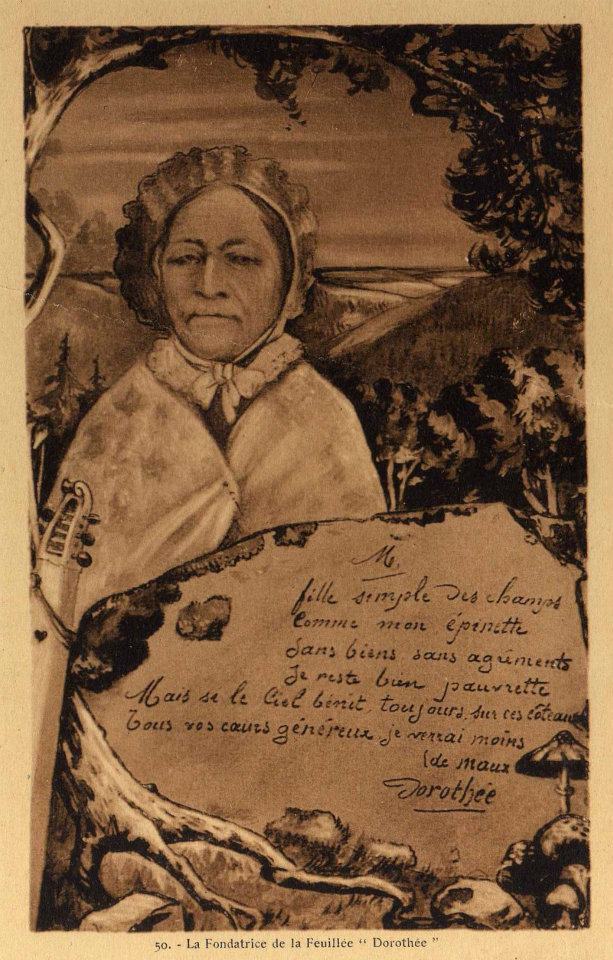 M,
fille simple des champs
Comme mon épinette
Sans biens, sans agréments
Je reste bien pauvrette
Mais si le Ciel bénit, toujours, sur ces côteaux
Tous vos cœurs généreux, je verrai moins
(de maux
Dorothée
50. - La Fondatrice de la Feuillée “ Dorothée ”